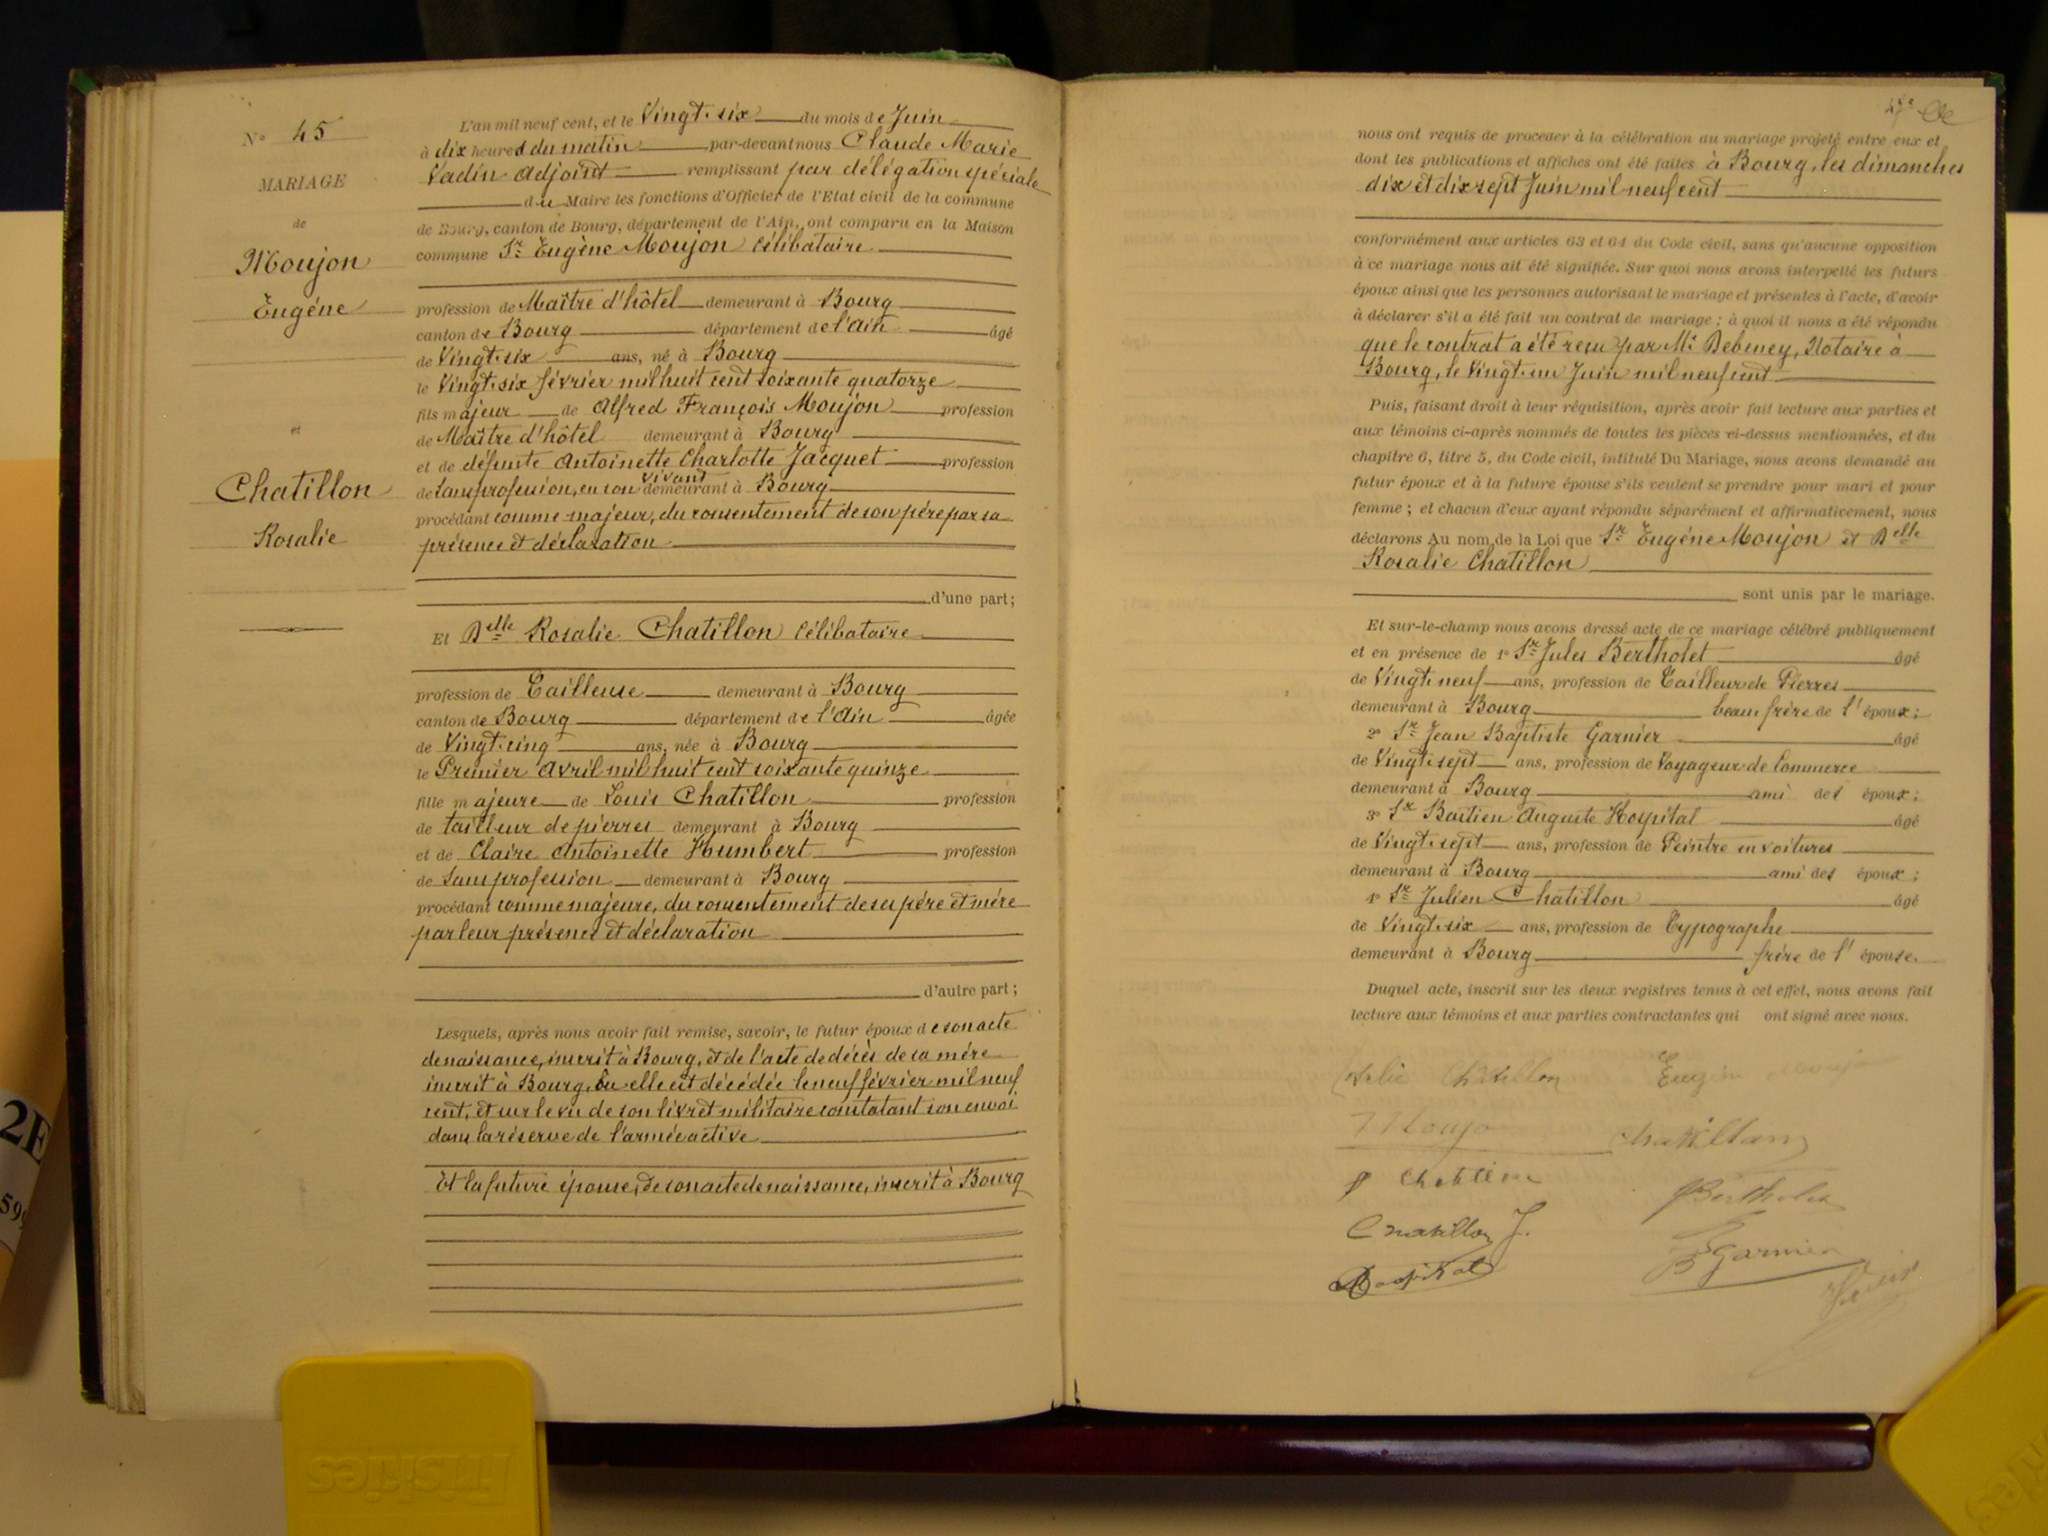 N° 45
MARIAGE
de
Moujon
Eugène
et
Chatillon
Rosalie
L'an mil neuf cent, et le Vingt-six du mois de Juin
à dix heures du matin par-devant nous Claude Marie
Vadin Adjoint remplissant par délégation spéciale
du Maire les fonctions d'Officier de l'Etat civil de la commune
de Bourg, canton de Bourg, département de l'Ain, ont comparu en la Maison
commune Sr Eugène Moujon célibataire
profession de Maître d'hôtel demeurant à Bourg
canton de Bourg département de l'Ain âgé
de Vingt-six ans, né à Bourg
le Vingt-six février mil huit cent soixante quatorze
fils majeur de Alfred François Moujon profession
de Maître d'hôtel demeurant à Bourg
et de défunte Antoinette Charlotte Jacquet profession
de sans profession, en son vivant demeurant à Bourg
procédant comme majeur, du consentement de son père par sa
présence et déclaration
d'une part;
Et Delle Rosalie Chatillon célibataire
profession de Tailleuse demeurant à Bourg
canton de Bourg département de l'Ain âgée
de Vingt-cinq ans, née à Bourg
le Premier Avril mil huit cent soixante quinze
fille majeure de Louis Chatillon profession
de tailleur de pierres demeurant à Bourg
et de Claire Antoinette Humbert profession
de sans profession demeurant à Bourg
procédant comme majeure, du consentement de ses père et mère
par leur présence et déclaration
d'autre part;
Lesquels, après nous avoir fait remise, savoir, le futur époux de son acte
de naissance, inscrit à Bourg, et de l'acte de décès de sa mère
inscrit à Bourg, où elle est décédée le neuf février mil neuf
cent, et sur le vu de son livret militaire constatant son envoi
dans la réserve de l'armée active
Et la future épouse, de son acte de naissance, inscrit à Bourg
nous ont requis de procéder à la célébration du mariage projeté entre eux et
dont les publications et affiches ont été faites à Bourg, les dimanches
dix et dix sept Juin mil neuf cent
conformément aux articles 63 et 64 du Code civil, sans qu'aucune opposition
à ce mariage nous ait été signifiée. Sur quoi nous avons interpellé les futurs
époux ainsi que les personnes autorisant le mariage et présentes à l'acte, d'avoir
à déclarer s'il a été fait un contrat de mariage; à quoi il nous a été répondu
que le contrat a été reçu par Me Debeney, Notaire à
Bourg, le Vingt-un Juin mil neuf cent
Puis, faisant droit à leur réquisition, après avoir fait lecture aux parties et
aux témoins ci-après nommés de toutes les pièces ci-dessus mentionnées, et du
chapitre 6, titre 5, du Code civil, intitulé Du Mariage, nous avons demandé au
futur époux et à la future épouse s'ils veulent se prendre pour mari et pour
femme; et chacun d'eux ayant répondu séparément et affirmativement, nous
déclarons Au nom de la Loi que Sr Eugène Moujon et Delle
Rosalie Chatillon
sont unis par le mariage.
Et sur-le-champ nous avons dressé acte de ce mariage célébré publiquement
et en présence de 1° Sr Jules Bertholet âgé
de Vingt-neuf ans, profession de Tailleur de Pierres
demeurant à Bourg beau frère de l'époux;
2° Sr Jean Baptiste Garnier âgé
de Vingt-sept ans, profession de Voyageur de Commerce
demeurant à Bourg ami des époux;
3° Sr Bastien Auguste Hospital âgé
de Vingt-sept ans, profession de Peintre en voitures
demeurant à Bourg ami des époux;
4° Sr Julien Chatillon âgé
de Vingt-six ans, profession de Typographe
demeurant à Bourg frère de l'épouse.
Duquel acte, inscrit sur les deux registres tenus à cet effet, nous avons fait
lecture aux témoins et aux parties contractantes qui ont signé avec nous.
Chatillon Eugène
Chatillon
Bertholet
Chatillon J.
Garnier
Hospital
2E
59
Friskies